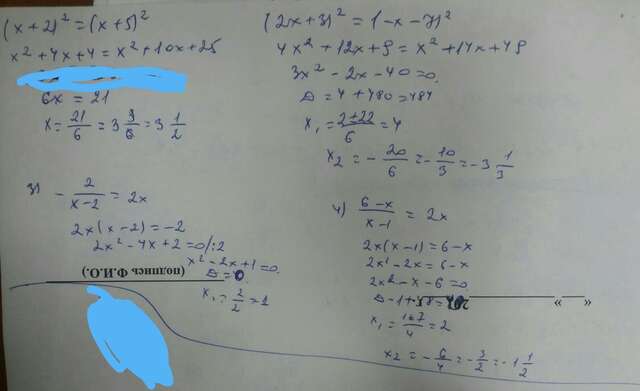 (x + 2)² = (x + 5)²
x² + 4x + 4 = x² + 10x + 25
6x = 21
x = 21/6 = 3 3/6 = 3 1/2
(2x + 3)² = (-x - 7)²
4x² + 12x + 9 = x² + 14x + 49
3x² - 2x - 40 = 0.
D = 4 + 480 = 484
x₁ = (2 + 22)/6 = 4
x₂ = - 20/6 = - 10/3 = -3 1/3
3) - 2/(x-2) = 2x
2x(x - 2) = -2
2x² - 4x + 2 = 0 /:2
x² - 2x + 1 = 0.
D = 0
x₁ = 2/2 = 1
(подпись Ф.И.О.)
4) (6-x)/(x-1) = 2x
2x(x - 1) = 6 - x
2x² - 2x = 6 - x
2x² - x - 6 = 0
x₁ = (1+7)/4 = 2
x₂ = - 6/4 = - 3/2 = -1 1/2